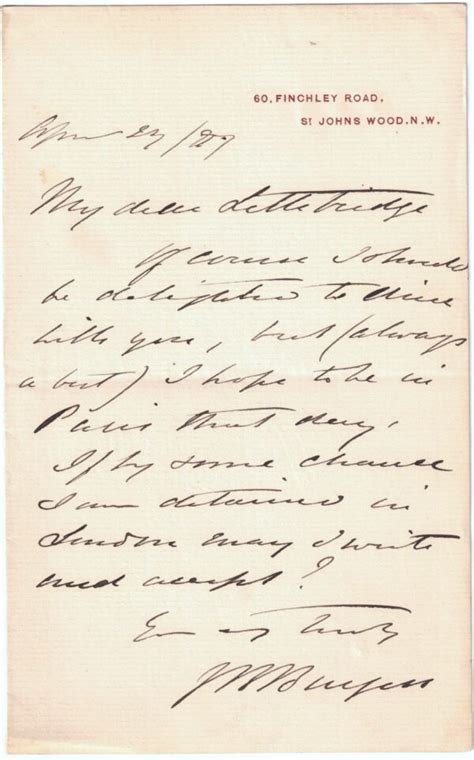 60, FINCHLEY ROAD,
ST JOHNS WOOD. N.W.
My dear Lethbridge
Of course I should
be delighted to dine
with you, but (always
a but) I hope to be in
Paris that day.
If by some chance
I am detained in
London may I write
and accept?
Truly